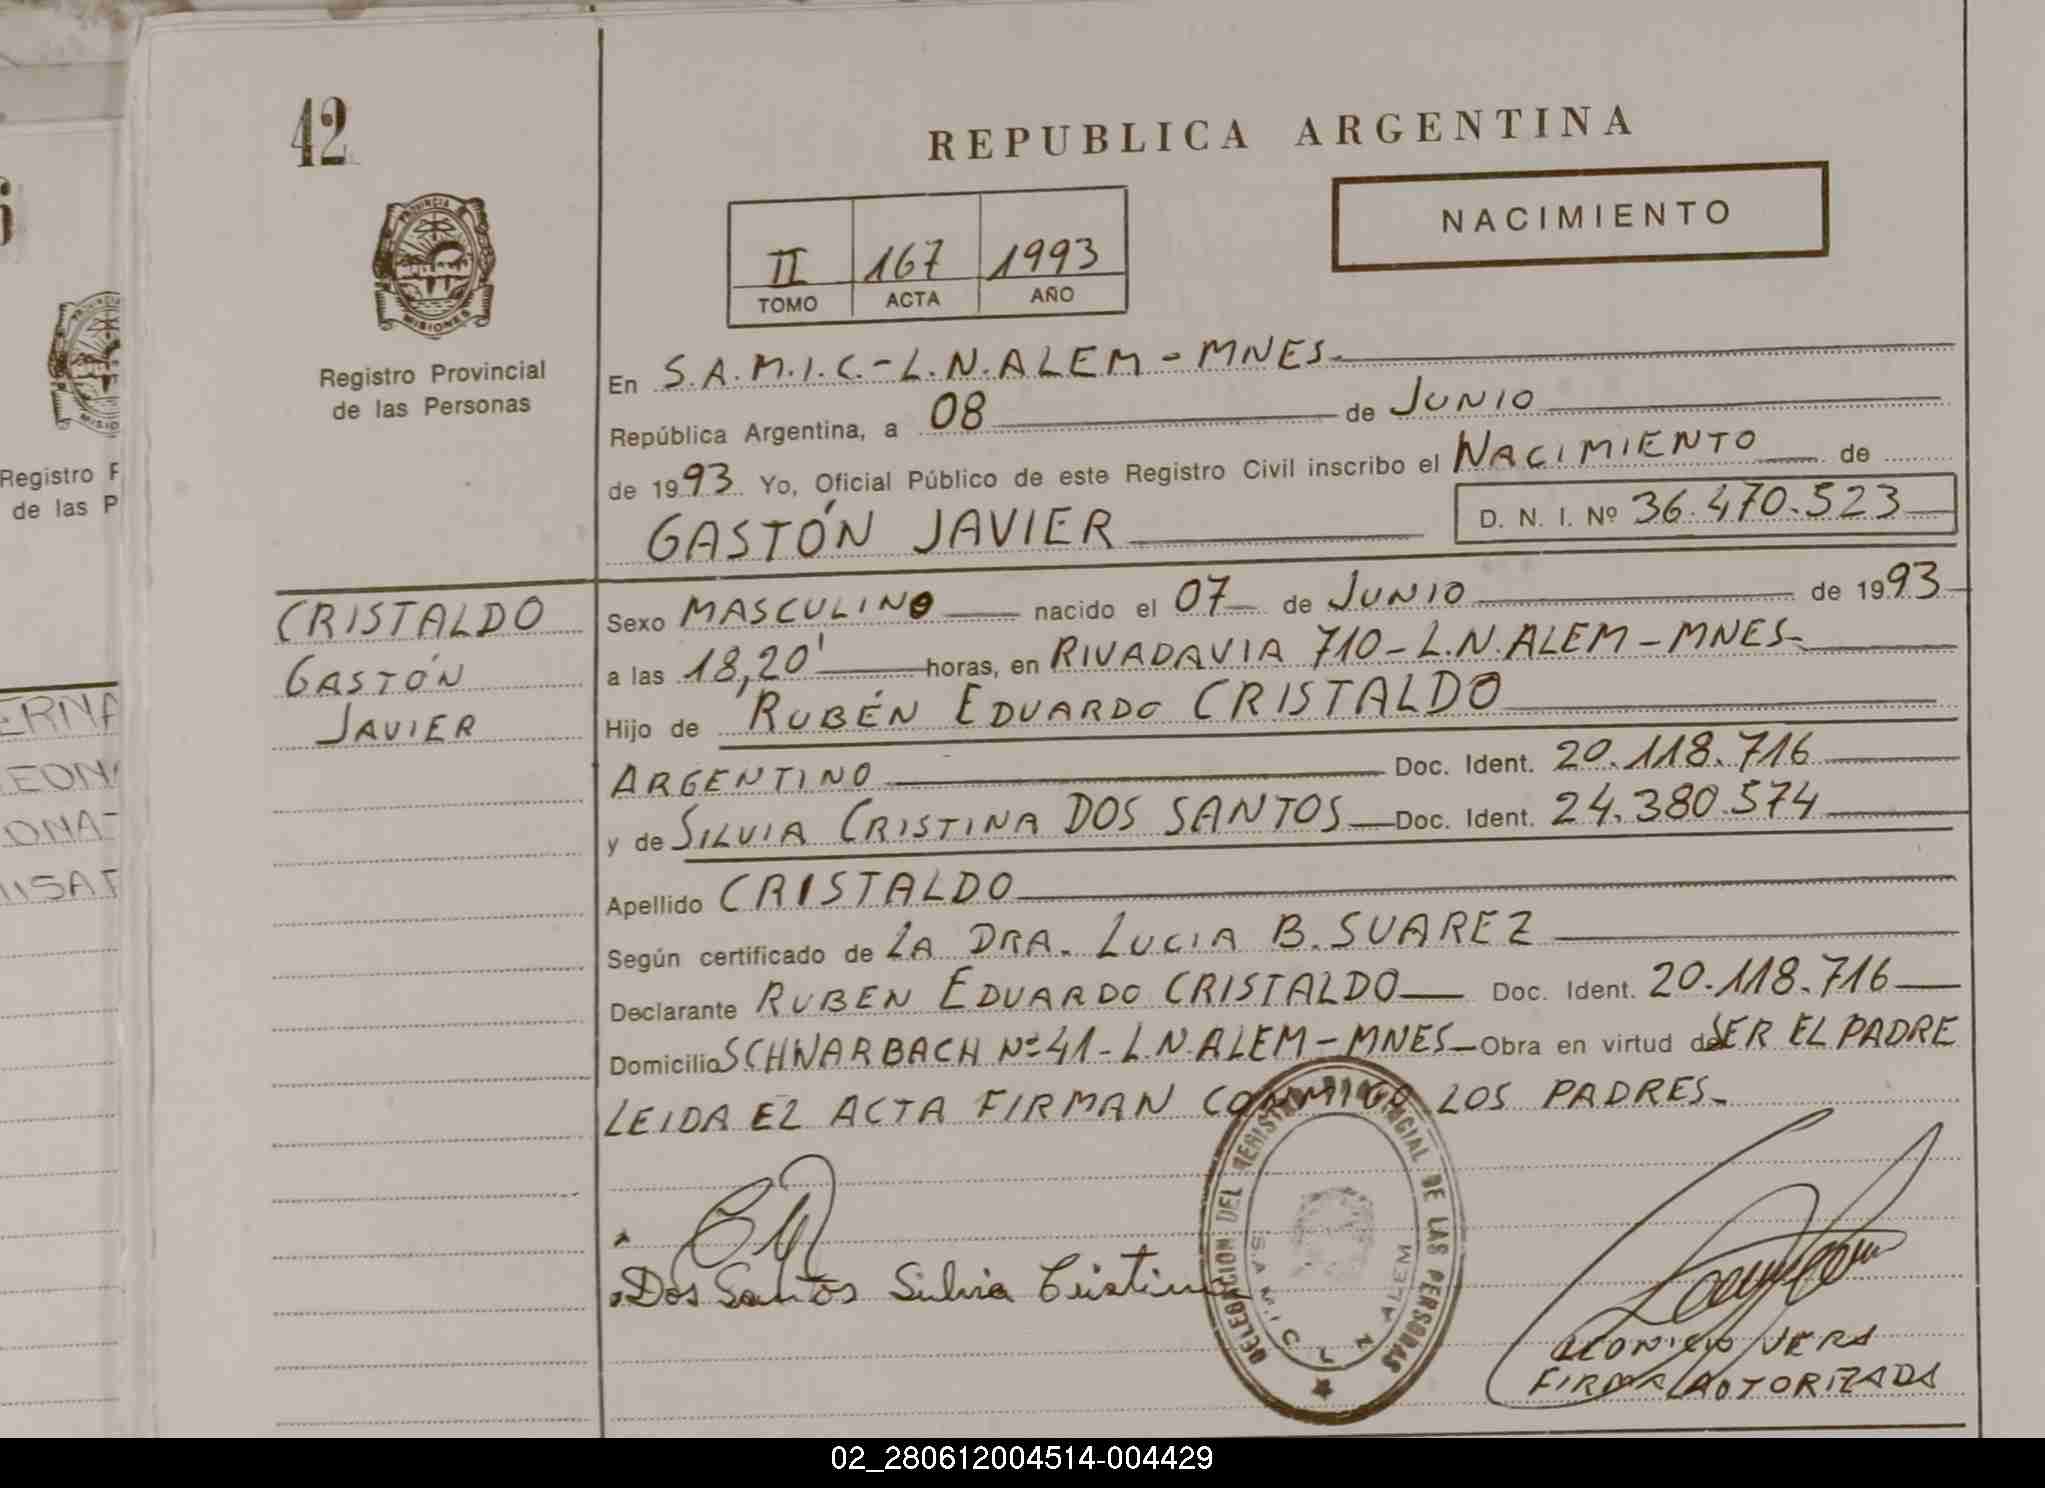 42
REPUBLICA ARGENTINA
NACIMIENTO
II 167 1993
TOMO ACTA AÑO
PROVINCIA
MISIONES
Registro Provincial
de las Personas
En S.A.M.I.C.-L.N.ALEM-MNES.
República Argentina, a 08 de JUNIO
de 1993. Yo, Oficial Público de este Registro Civil inscribo el NACIMIENTO de
GASTÓN JAVIER D. N. I. Nº 36.470.523
CRISTALDO
GASTÓN
JAVIER
Sexo MASCULINO nacido el 07 de JUNIO de 1993
a las 18,20' horas, en RIVADAVIA 710-L.N.ALEM-MNES-
Hijo de RUBÉN EDUARDO CRISTALDO
ARGENTINO Doc. Ident. 20.118.716
y de SILVIA CRISTINA DOS SANTOS Doc. Ident. 24.380.574
Apellido CRISTALDO
Según certificado de LA DRA. LUCIA B. SUAREZ
Declarante RUBEN EDUARDO CRISTALDO Doc. Ident. 20.118.716
Domicilio SCHWARBACH Nº 41-L.N.ALEM-MNES Obra en virtud de SER EL PADRE
LEIDA EL ACTA FIRMAN CONMIGO LOS PADRES.
Dos Santos Silvia Cristina
DELEGACION DEL REGISTRO PROVINCIAL DE LAS PERSONAS
S.A.M.I.C. L N ALEM
VERA
FIRMA AUTORIZADA
Registro P
de las P
ERNA
EON
ONA
02_280612004514-004429